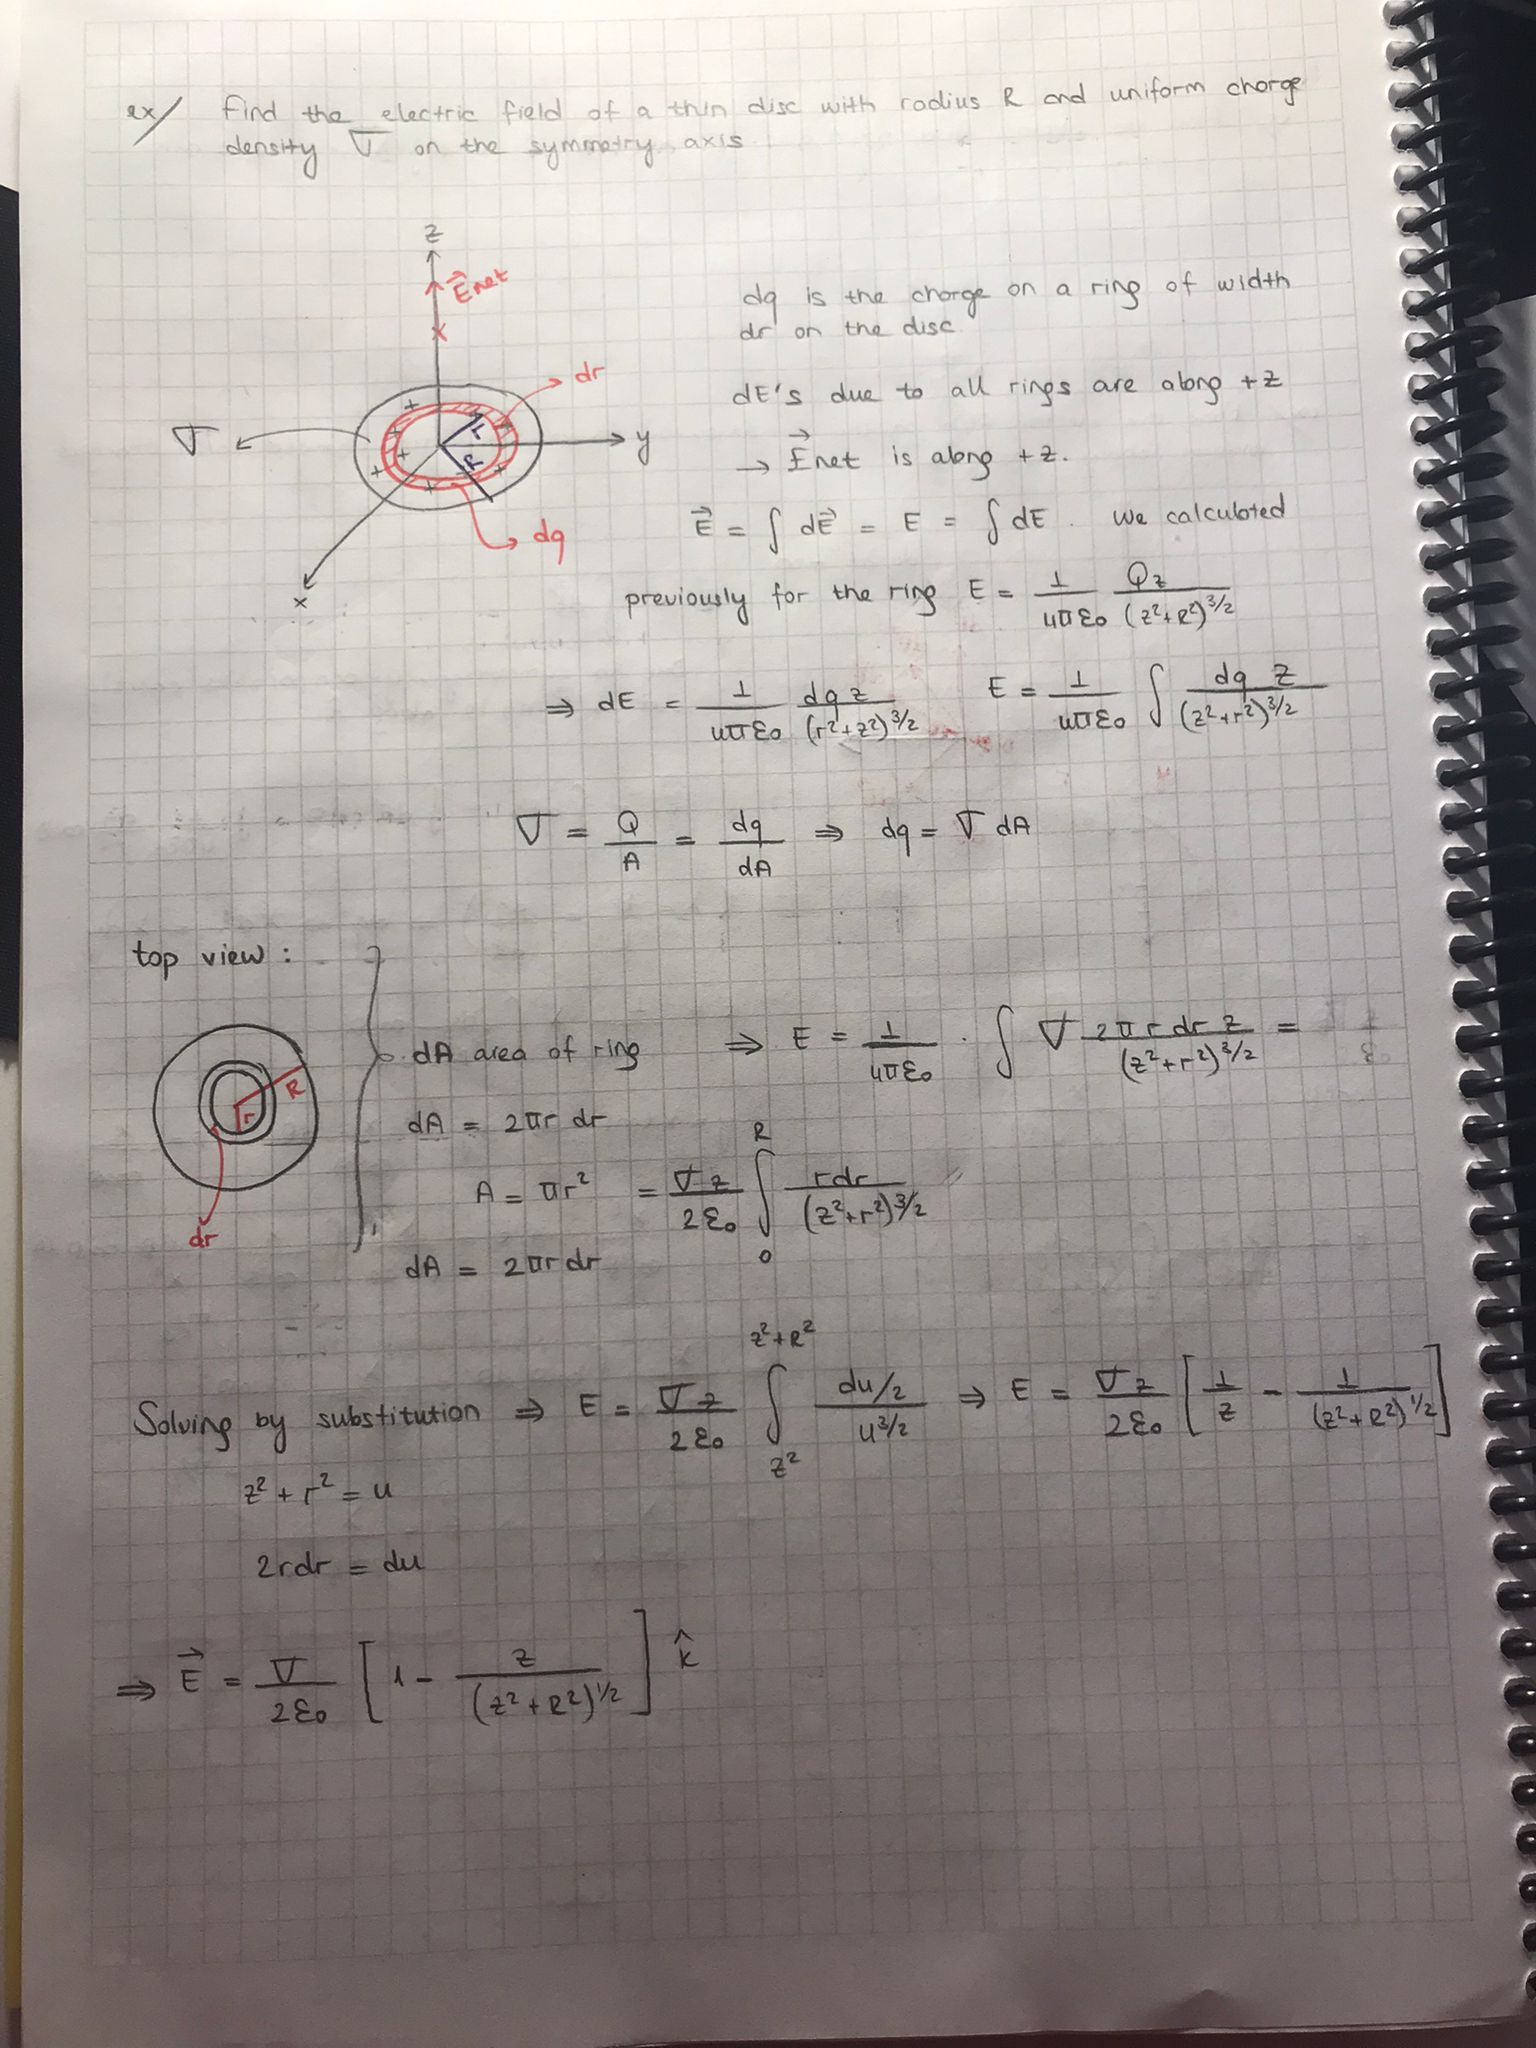 ex/ Find the electric field of a thin disc with radius R and uniform charge
density σ on the symmetry axis
z
E⃗net
x
dr
σ
+ + + + + + +
r
R
y
dq
x
dq is the charge on a ring of width
dr on the disc.
dE's due to all rings are along +z
→ E⃗net is along +z.
E⃗ = ∫ dE⃗ = E = ∫ dE. We calculated
previously for the ring E = 1/(4πε₀) Qz/(z²+R²)^3/2
⇒ dE = 1/(4πε₀) dq z/(r²+z²)^3/2 E = 1/(4πε₀) ∫ dq z/(z²+r²)^3/2
σ = Q/A = dq/dA ⇒ dq = σ dA
top view:
R
r
dr
dA area of ring ⇒ E = 1/(4πε₀) . ∫ σ 2πr dr z/(z²+r²)^3/2 =
dA = 2πr dr
A = πr² = σz/(2ε₀) ∫₀^R rdr/(z²+r²)^3/2
dA = 2πr dr
Solving by substitution ⇒ E = σz/(2ε₀) ∫_{z²}^{z²+R²} (du/2)/u^3/2 ⇒ E = σz/(2ε₀) [1/z - 1/(z²+R²)^1/2]
z² + r² = u
2rdr = du
⇒ E⃗ = σ/(2ε₀) [1 - z/(z²+R²)^1/2] k̂